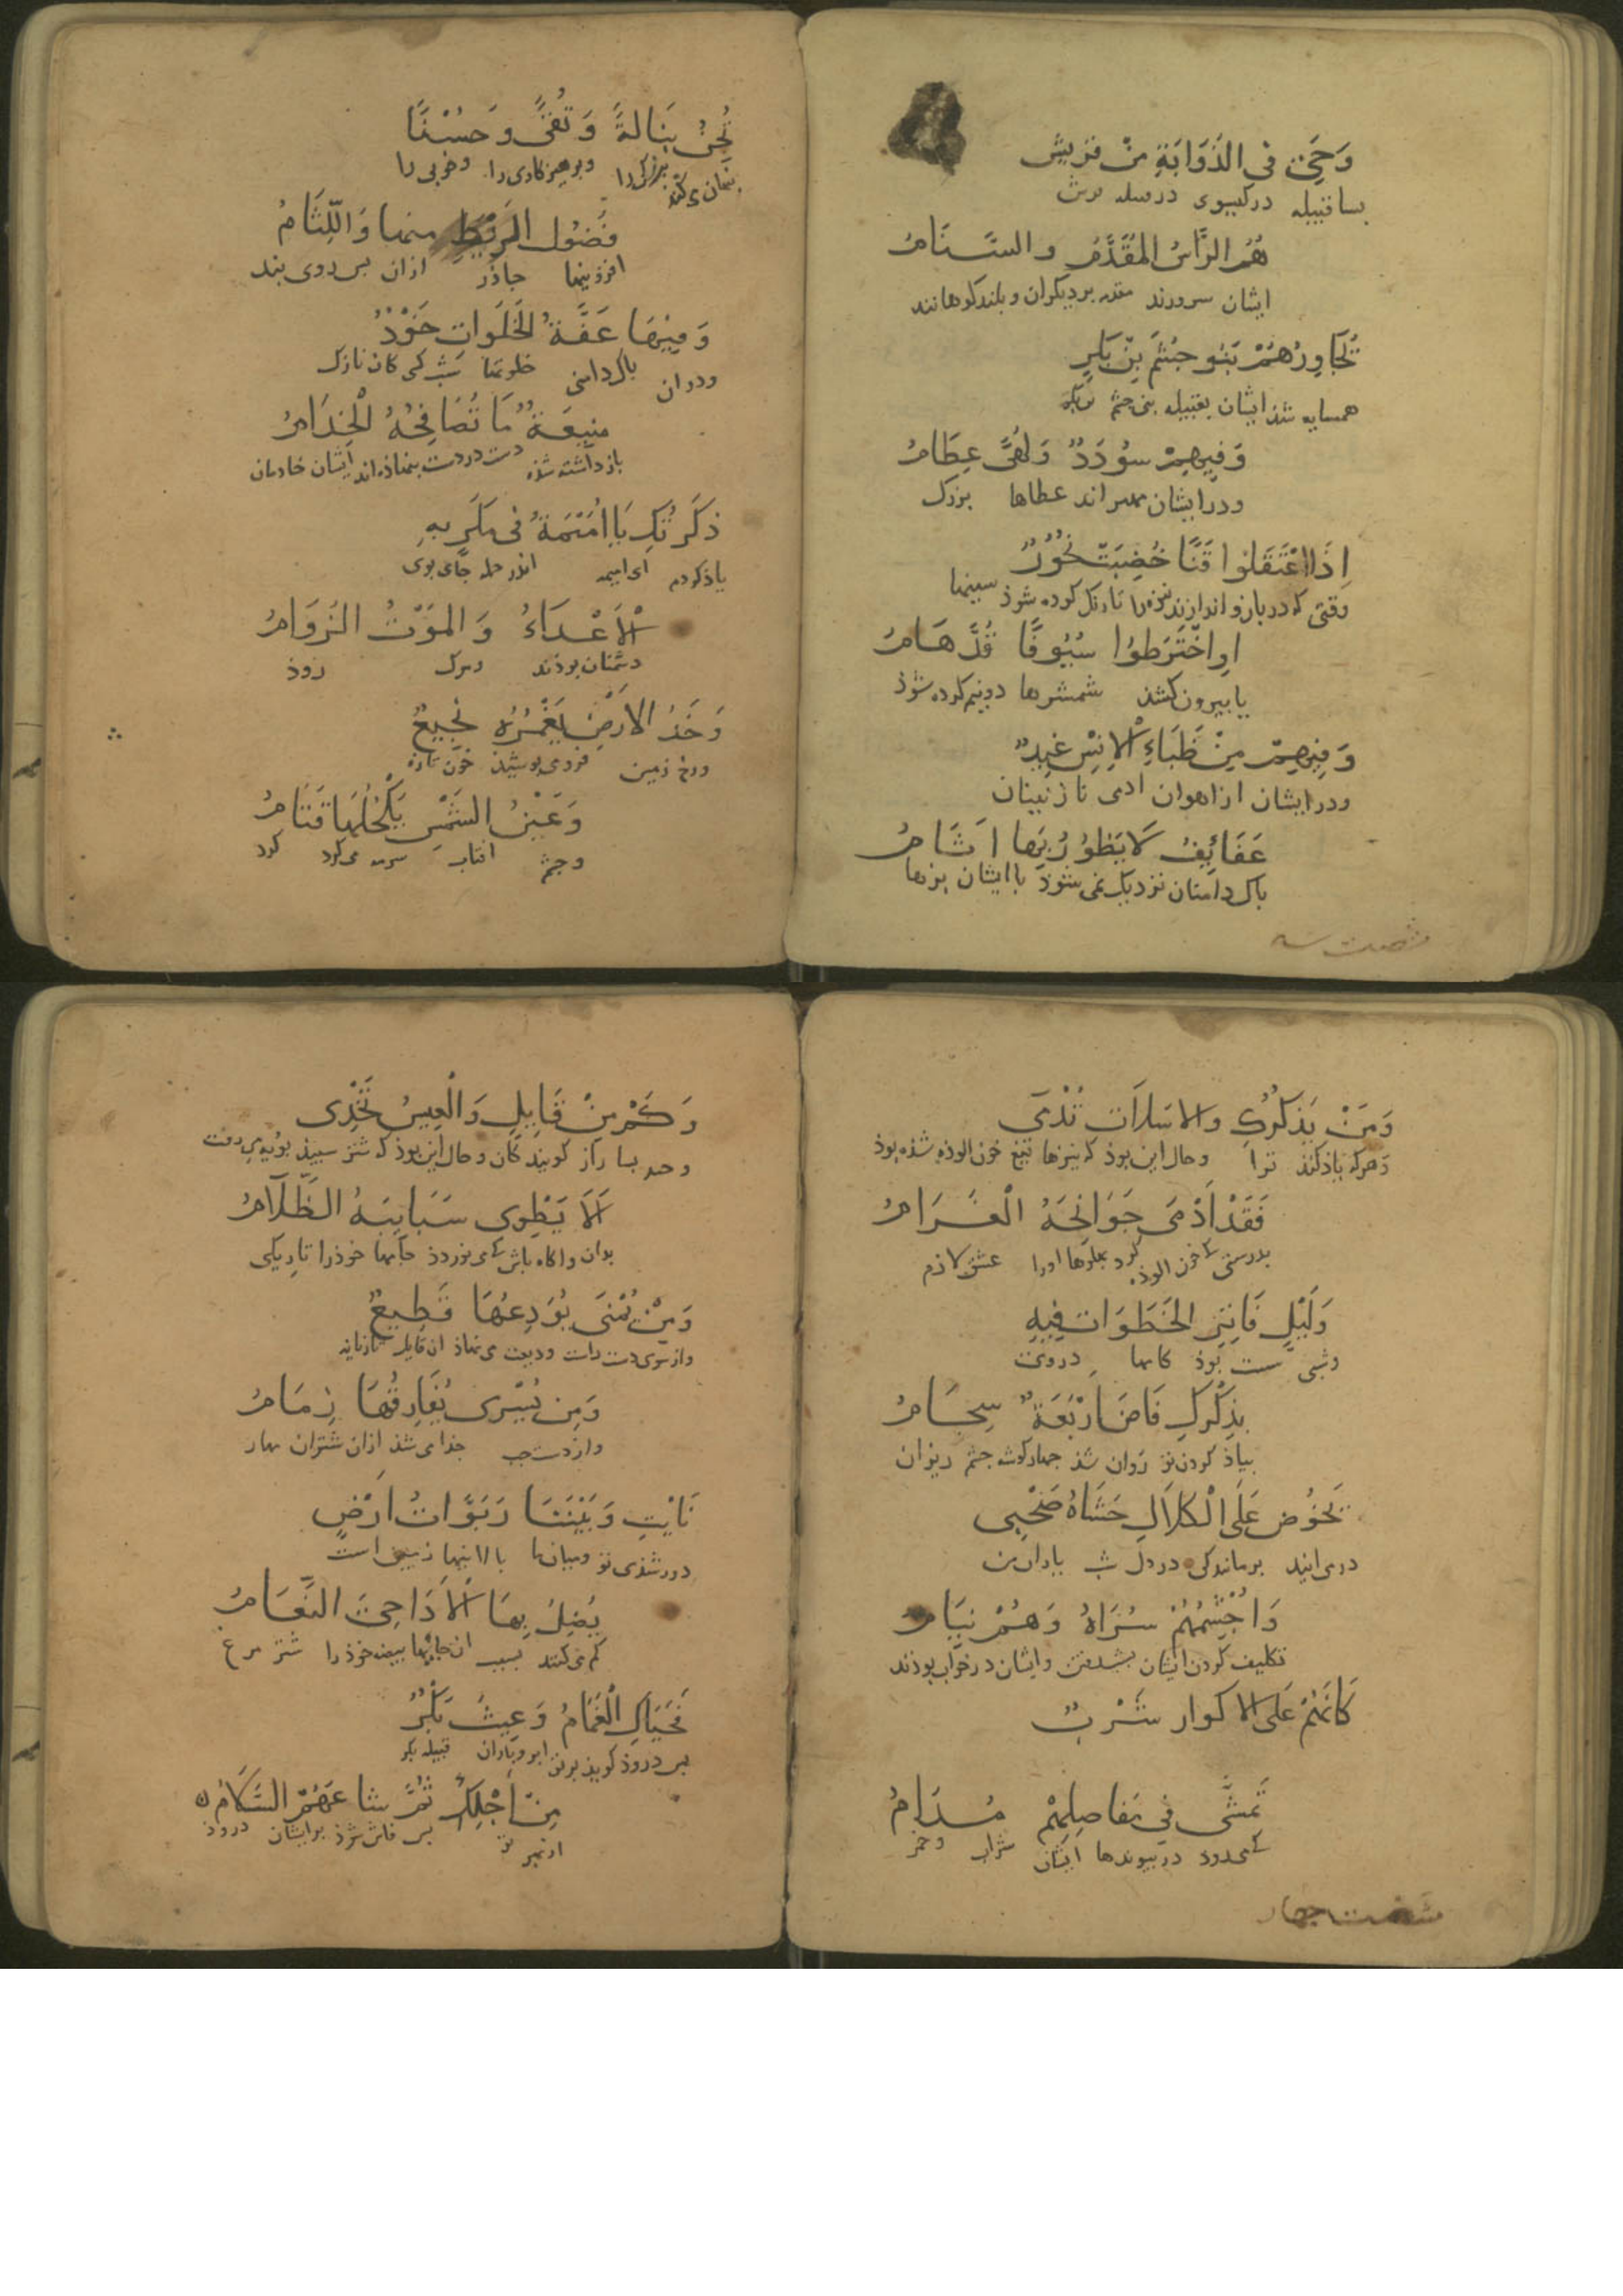 وَحَيٍّ في الذُّوَابَةِ مِنْ قريش
بسا قبيله در كيسوى
هُمُ الرَّأسُ المُقَدَّمُ والسَّنَامُ
ايشان سرورند مقدم بر ديكران و بلند كوهانند
تُجَاوِرُهُمْ بَنُو جُشَمَ بِنِ بَكرٍ
همسايه شذ ايشان بقبيله بنى جشم
وَفِيهِمْ سُودَدٌ وَلُهًى عِظَامُ
ودر ايشان اند عطاها بزرك
اِذَا اعْتَقَلُوا قَنًا خُضِبَتْ نُحُورٌ
وقتى كه در بازو اندازند نيزه را تا رنك كرده شوذ سينها
اوِ اخْتَرَطُوا سُيُوفًا قُدَّ هَامُ
يا بيرون كشند شمشيرها دونيم كرده شوذ
وَفِيهِمْ مِنْ ظَبَاءِ الاِنِس غِيدٌ
ودر ايشان از اهوان ادمى نازنينان
عَفَائِفُ لَا يَطُورُ بِهَا اَثَامُ
باك دامنان نزديك نمى شوذ با ايشان بزها
شصت سه
تُجِنُّ بَنَالةً وَتُقًى وَحُسْنًا
بنهان مى كند بزركى را وبرهيزكارى را وخوبى را
فُضُول الرَّيْطِ منها وَاللِّثَامُ
افزونيها جاذر ازان بس روى بند
وَمِنْهَا عَفَّةُ الخَلَوَاتِ خَوْدٌ
ودران باك دامنى خلوتها نازك
مَنِيعَةٌ مَا تُصَافِحُهُ الْخِدَامُ
باز داشته شذه دست در دست ننهاذه اند ايشان خادمان
ذَكَرتُكِ يَا اُمَيْمَةُ فى مَكَرٍ بِهِ
ياذ كردم اى اميمه اندر حمله جاى بوى
اَلاَعْدَاءُ وَالمَوْتُ الزؤَامُ
دشمنان بوذند ومرك زوذ
وَخَدُّ الارْضِ يَغْمُرُهُ نَجِيعٌ
ورخ زمين فرو مى بوشيذ خون تازه
وَعَيْنُ الشَّمْسِ يَكْحُلُهَا قَتَامُ
وجشم افتاب سرمه مى كرد كرد
وَمَنْ يَذكُرْكِ والاسَلاَت تَدْمَى
وهركه ياذ كند ترا وحال اين بوذ كه نيزها تيغ خون الوذه شذه بوذ
فَقَدْ اَدْمَى جَوَانِحَهُ الْغَرَامُ
بدرستى كه خون الوذه كرد بهلوها اورا عشق لازم
وَلَيْلٍ فَاتِرِ الخَطَوَاتِ فِيهِ
وشبى سست بوذ كامها دروى
بِذِكْرِكِ فَاضَ اَرْبَعَةٌ سِجَامُ
بياذ كردن تو روان شذ جهار كوشه جشم ريزان
تَخُوضُ عَلَى الْكَلاَلِ حَشَاهُ صَحْبِى
در مى ايند بر ماندكى در دل شب ياران من
وَاُجْشِمُهُمْ سُرَاهُ وَهُمْ نِيَامُ
تكليف كردن ايشان بشب رفتن وايشان در خواب بوذند
كَاَنَّهُمْ عَلَى الاكوار شَرْبٌ
تَمَشَّى في مَفاصِلِهِمْ مُدَامُ
كه مى رود در بيوندها ايشان شراب وخمر
شصت جهار
وَكَمْ مِنْ قَابِلٍ وَالْعِيسُ تَخْدِى
وجند بسا راز كويندكان وحال اين بوذ كه شتر سبيذ بويه مى رفت
اَلاَ يَطْوِى سَبَايِبَهُ الظَّلاَمُ
بدان واكاه باش كه مى نوردذ جامها خوذرا تاريكى
وَمِنْ يُمْنَى يُوَدِعُهَا قَطِيعٌ
واز سوى دست راست وديعت مى نهاذ ان قايل تازيانه
وَمِن يُسْرى يُفَارِقُهَا زِمَامُ
واز دست جب جذا مى شذ ازان شتران مهار
نَاَيْتِ وَبَيْنَنَا رَبَوَاتُ اَرْضٍ
دور شذى تو وميان ما بالاينها زمين است
يُضِلُّ بِهَا الاَدَاحِىَ النَّعَامُ
كم مى كنند بسبب ان جايها بيضه خوذرا شتر مرغ
فَحَيَاكِ الْغَمَامُ وَعِيثَ بَكْرٌ
بس دروذ كويذ بر تو ابر وباران قبيله بكر
مِنَ اَجْلِكِ ثُمَّ شاعَهُمْ السَّلاَمُ
از بهر تو بس فاش شوذ بر ايشان دروذ